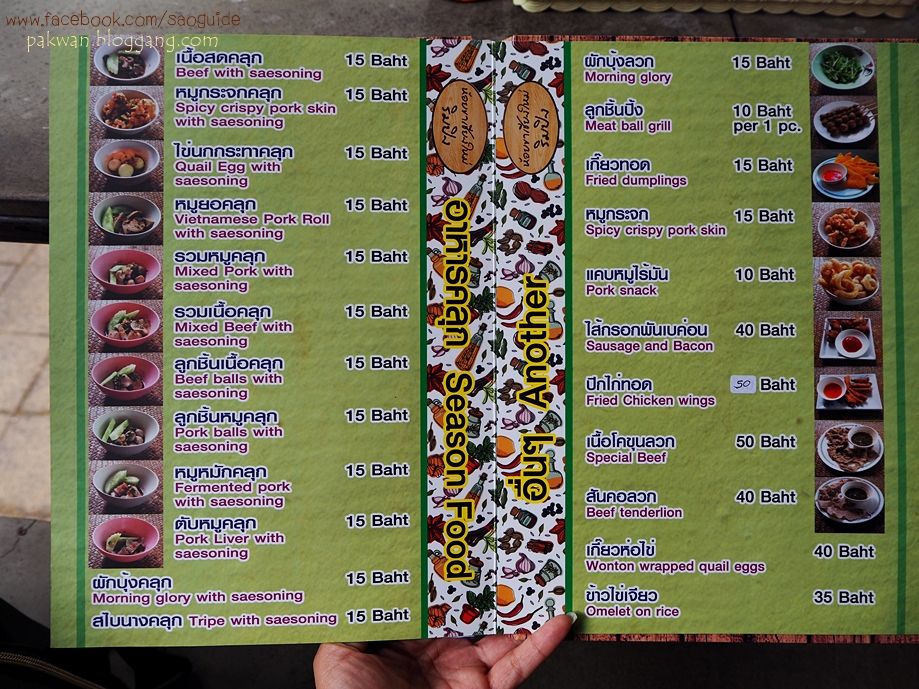 www.facebook.com/saoguide
pakwan.bloggang.com
เนื้อสดคลุก 15 Baht
Beef with saesoning
หมูกระจกคลุก 15 Baht
Spicy crispy pork skin
with saesoning
ไข่นกกระทาคลุก 15 Baht
Quail Egg with
saesoning
หมูยอคลุก 15 Baht
Vietnamese Pork Roll
with saesoning
รวมหมูคลุก 15 Baht
Mixed Pork with
saesoning
รวมเนื้อคลุก 15 Baht
Mixed Beef with
saesoning
ลูกชิ้นเนื้อคลุก 15 Baht
Beef balls with
saesoning
ลูกชิ้นหมูคลุก 15 Baht
Pork balls with
saesoning
หมูหมักคลุก 15 Baht
Fermented pork
with saesoning
ตับหมูคลุก 15 Baht
Pork Liver with
saesoning
ผักบุ้งคลุก 15 Baht
Morning glory with saesoning
สไบนางคลุก Tripe with saesoning 15 Baht
อาหารคลุก Season Food
อื่นๆ Another
ผักบุ้งลวก 15 Baht
Morning glory
ลูกชิ้นปิ้ง 10 Baht
Meat ball grill per 1 pc.
เกี๊ยวทอด 15 Baht
Fried dumplings
หมูกระจก 15 Baht
Spicy crispy pork skin
แคบหมูไร้มัน 10 Baht
Pork snack
ไส้กรอกพันเบค่อน 40 Baht
Sausage and Bacon
ปีกไก่ทอด 50 Baht
Fried Chicken wings
เนื้อโคขุนลวก 50 Baht
Special Beef
สันคอลวก 40 Baht
Beef tenderlion
เกี๊ยวห่อไข่ 40 Baht
Wonton wrapped quail eggs
ข้าวไข่เจียว 35 Baht
Omelet on rice